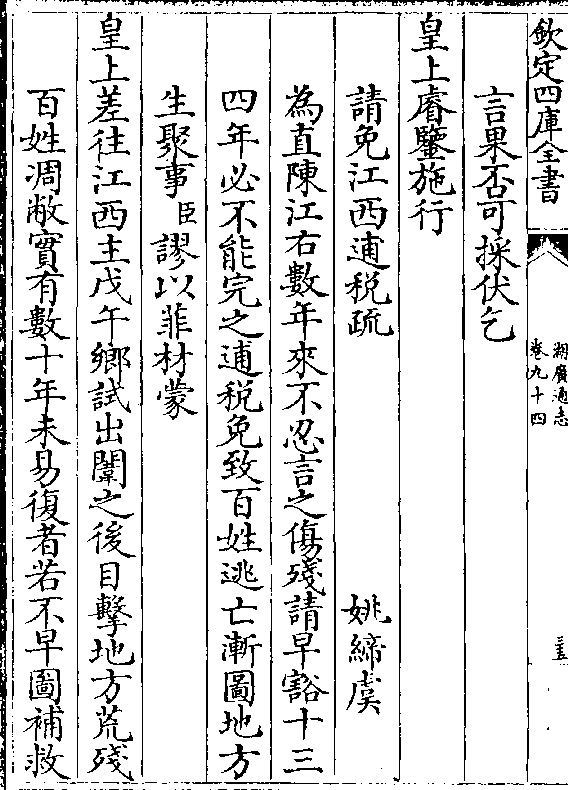 欽定四庫全書
湖廣通志
卷九十四
言果否可採伏乞
皇上睿鑒施行
請免江西逋税疏 姚締虞
為直陳江右數年來不忍言之傷殘請早豁十三
四年必不能完之逋税免致百姓逃亡漸圖地方
生聚事臣謬以菲材蒙
皇上差往江西主戊午鄉試出闈之後目擊地方荒殘
百姓凋敝實有數十年未易復者若不早圖補救